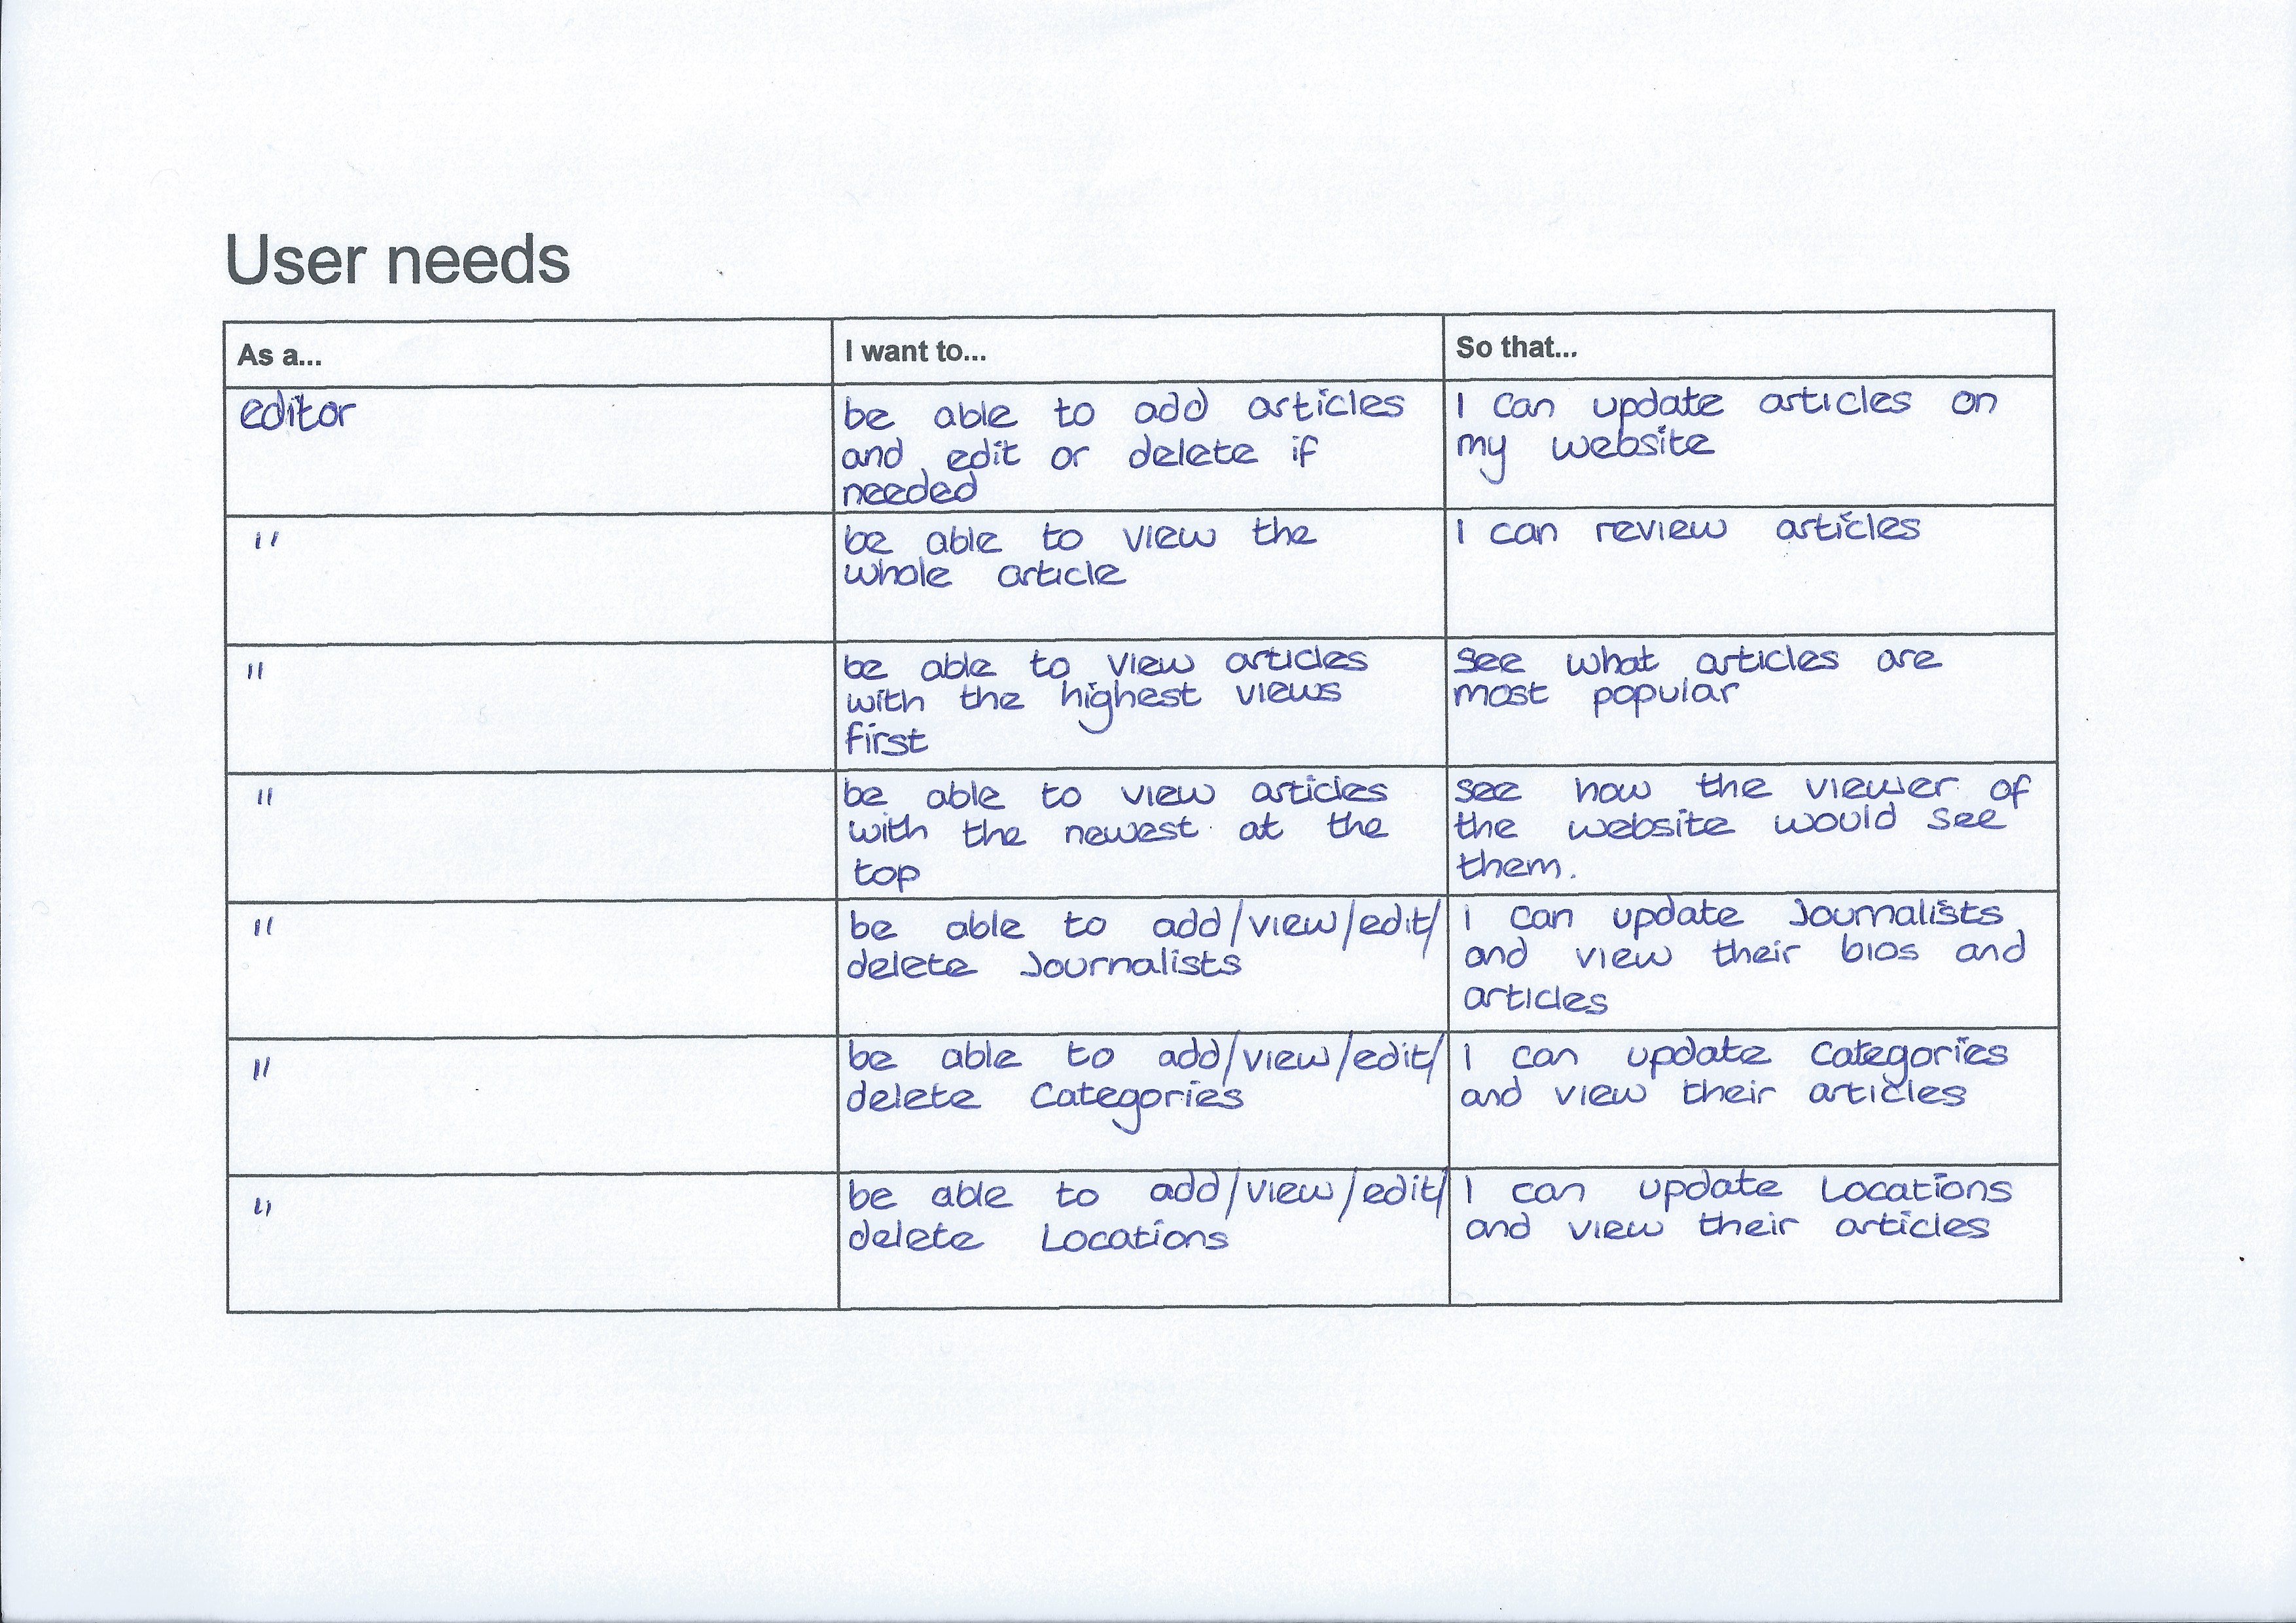 User needs
As a... I want to... So that...
editor
be able to add articles
and edit or delete if
needed
I can update articles on
my website
"
be able to view the
whole article
I can review articles
"
be able to view articles
with the highest views
first
see what articles are
most popular
"
be able to view articles
with the newest at the
top
see how the viewer of
the website would see
them.
"
be able to add/view/edit/
delete Journalists
I can update Journalists
and view their bios and
articles
"
be able to add/view/edit/
delete Categories
I can update Categories
and view their articles
"
be able to add/view/edit/
delete Locations
I can update Locations
and view their articles